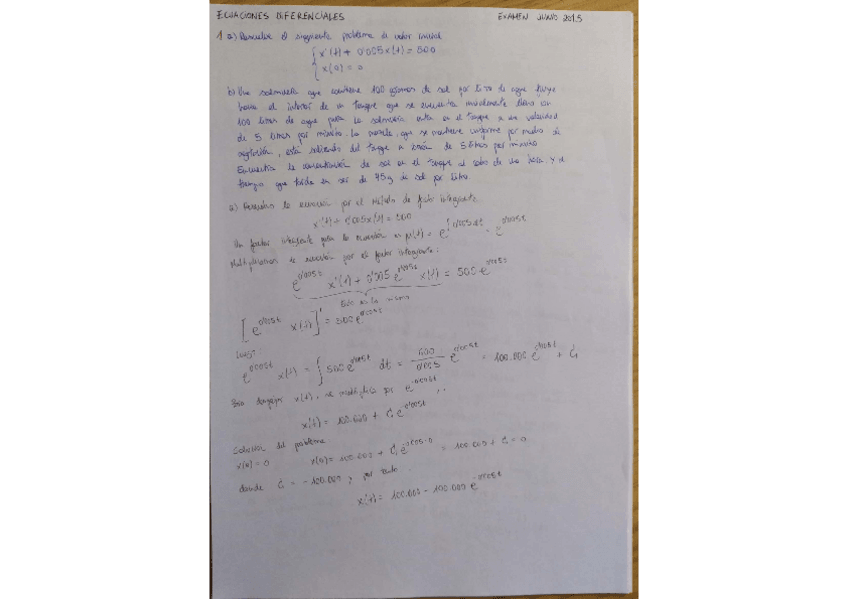 ECUACIONES DIFERENCIALES EXAMEN JUNIO 2015
1 a) Resuelve el siguiente problema de valor inicial
x'(t) + 0'005x(t) = 500
x(0) = 0
b) Una salmuera que contiene 100 gramos de sal por litro de agua fluye
hacia el interior de un tanque que se encuentra inicialmente lleno con
100 litros de agua pura. La salmuera entra en el tanque a una velocidad
de 5 litros por minuto. La mezcla, que se mantiene uniforme por medio de
agitación, está saliendo del tanque a razón de 5 litros por minuto
Encuentra la concentración de sal en el tanque al cabo de una hora, y el
tiempo que tarda en ser de 75g de sal por litro.
a) la ecuación por el método de factor integrante
x'(t) + 0'005x(t) = 500
Un factor integrante para la ecuación es μ(t) = e^{∫0'005 dt} = e^{0'005t}
Multiplicamos la ecuación por el factor integrante:
e^{0'005t} x'(t) + 0'005 e^{0'005t} x(t) = 500 e^{0'005t}
[e^{0'005t} x(t)]' = 500 e^{0'005t}
Luego
e^{0'005t} x(t) = ∫ 500 e^{0'005t} dt = 500/0'005 e^{0'005t} = 100.000 e^{0'005t} + C₁
x(t), se multiplica por e^{-0'005t}
x(t) = 100.000 + C₁ e^{-0'005t}
Solución del problema
x(0) = 0 x(0) = 100.000 + C₁ e^{-0'005·0} = 100.000 + C₁ = 0
donde C₁ = -100.000 y por tanto
x(t) = 100.000 - 100.000 e^{-0'005t}